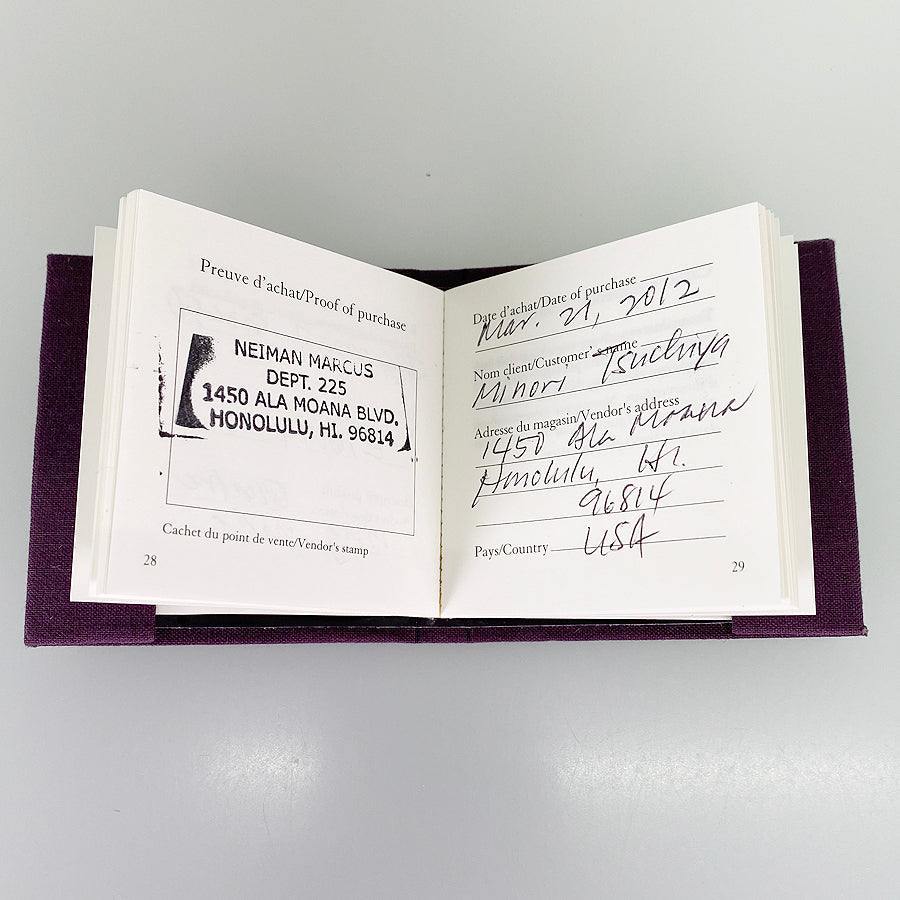 Preuve d'achat/Proof of purchase
NEIMAN MARCUS
DEPT. 225
1450 ALA MOANA BLVD.
HONOLULU, HI. 96814
Cachet du point de vente/Vendor's stamp
28
Date d'achat/Date of purchase
Mar. 21, 2012
Nom client/Customer's name
Minori Tsuchiya
Adresse du magasin/Vendor's address
1450 Ala Moana
Honolulu, HI.
96814
Pays/Country USA
29